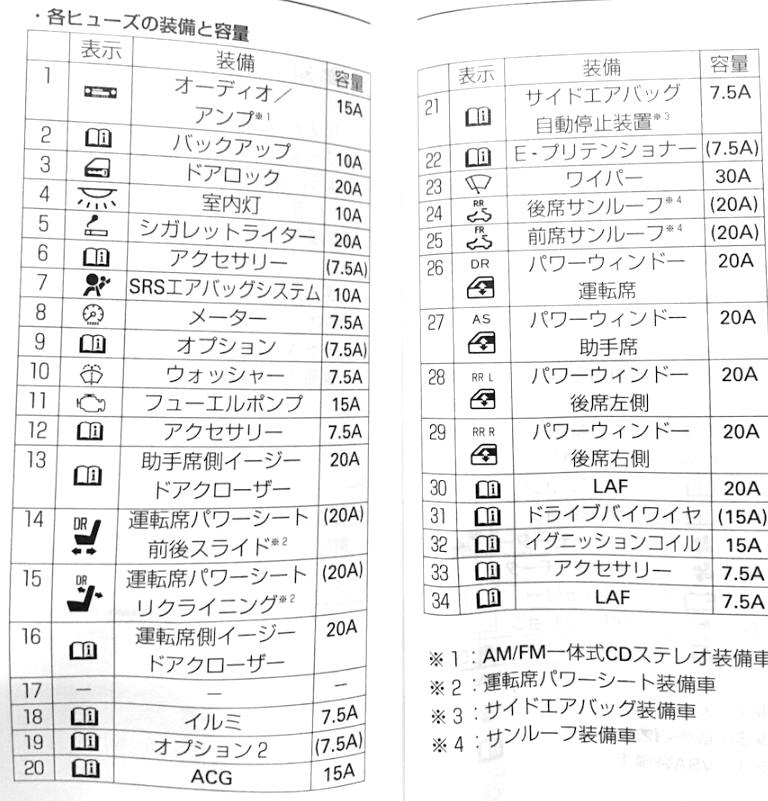 ・各ヒューズの装備と容量
表示 装備 容量
1 オーディオ／
アンプ※1 15A
2 バックアップ 10A
3 ドアロック 20A
4 室内灯 10A
5 シガレットライター 20A
6 アクセサリー (7.5A)
7 SRSエアバッグシステム 10A
8 メーター 7.5A
9 オプション (7.5A)
10 ウォッシャー 7.5A
11 フューエルポンプ 15A
12 アクセサリー 7.5A
13 助手席側イージー 20A
ドアクローザー
14 DR 運転席パワーシート (20A)
前後スライド※2
15 DR 運転席パワーシート (20A)
リクライニング※2
16 運転席側イージー 20A
ドアクローザー
17 － － －
18 イルミ 7.5A
19 オプション2 (7.5A)
20 ACG 15A
表示 装備 容量
21 サイドエアバッグ 7.5A
自動停止装置※3
22 E-プリテンショナー (7.5A)
23 ワイパー 30A
24 RR 後席サンルーフ※4 (20A)
25 FR 前席サンルーフ※4 (20A)
26 DR パワーウィンドー 20A
運転席
27 AS パワーウィンドー 20A
助手席
28 RR L パワーウィンドー 20A
後席左側
29 RR R パワーウィンドー 20A
後席右側
30 LAF 20A
31 ドライブバイワイヤ (15A)
32 イグニッションコイル 15A
33 アクセサリー 7.5A
34 LAF 7.5A
※1：AM/FM一体式CDステレオ装備車
※2：運転席パワーシート装備車
※3：サイドエアバッグ装備車
※4：サンルーフ装備車